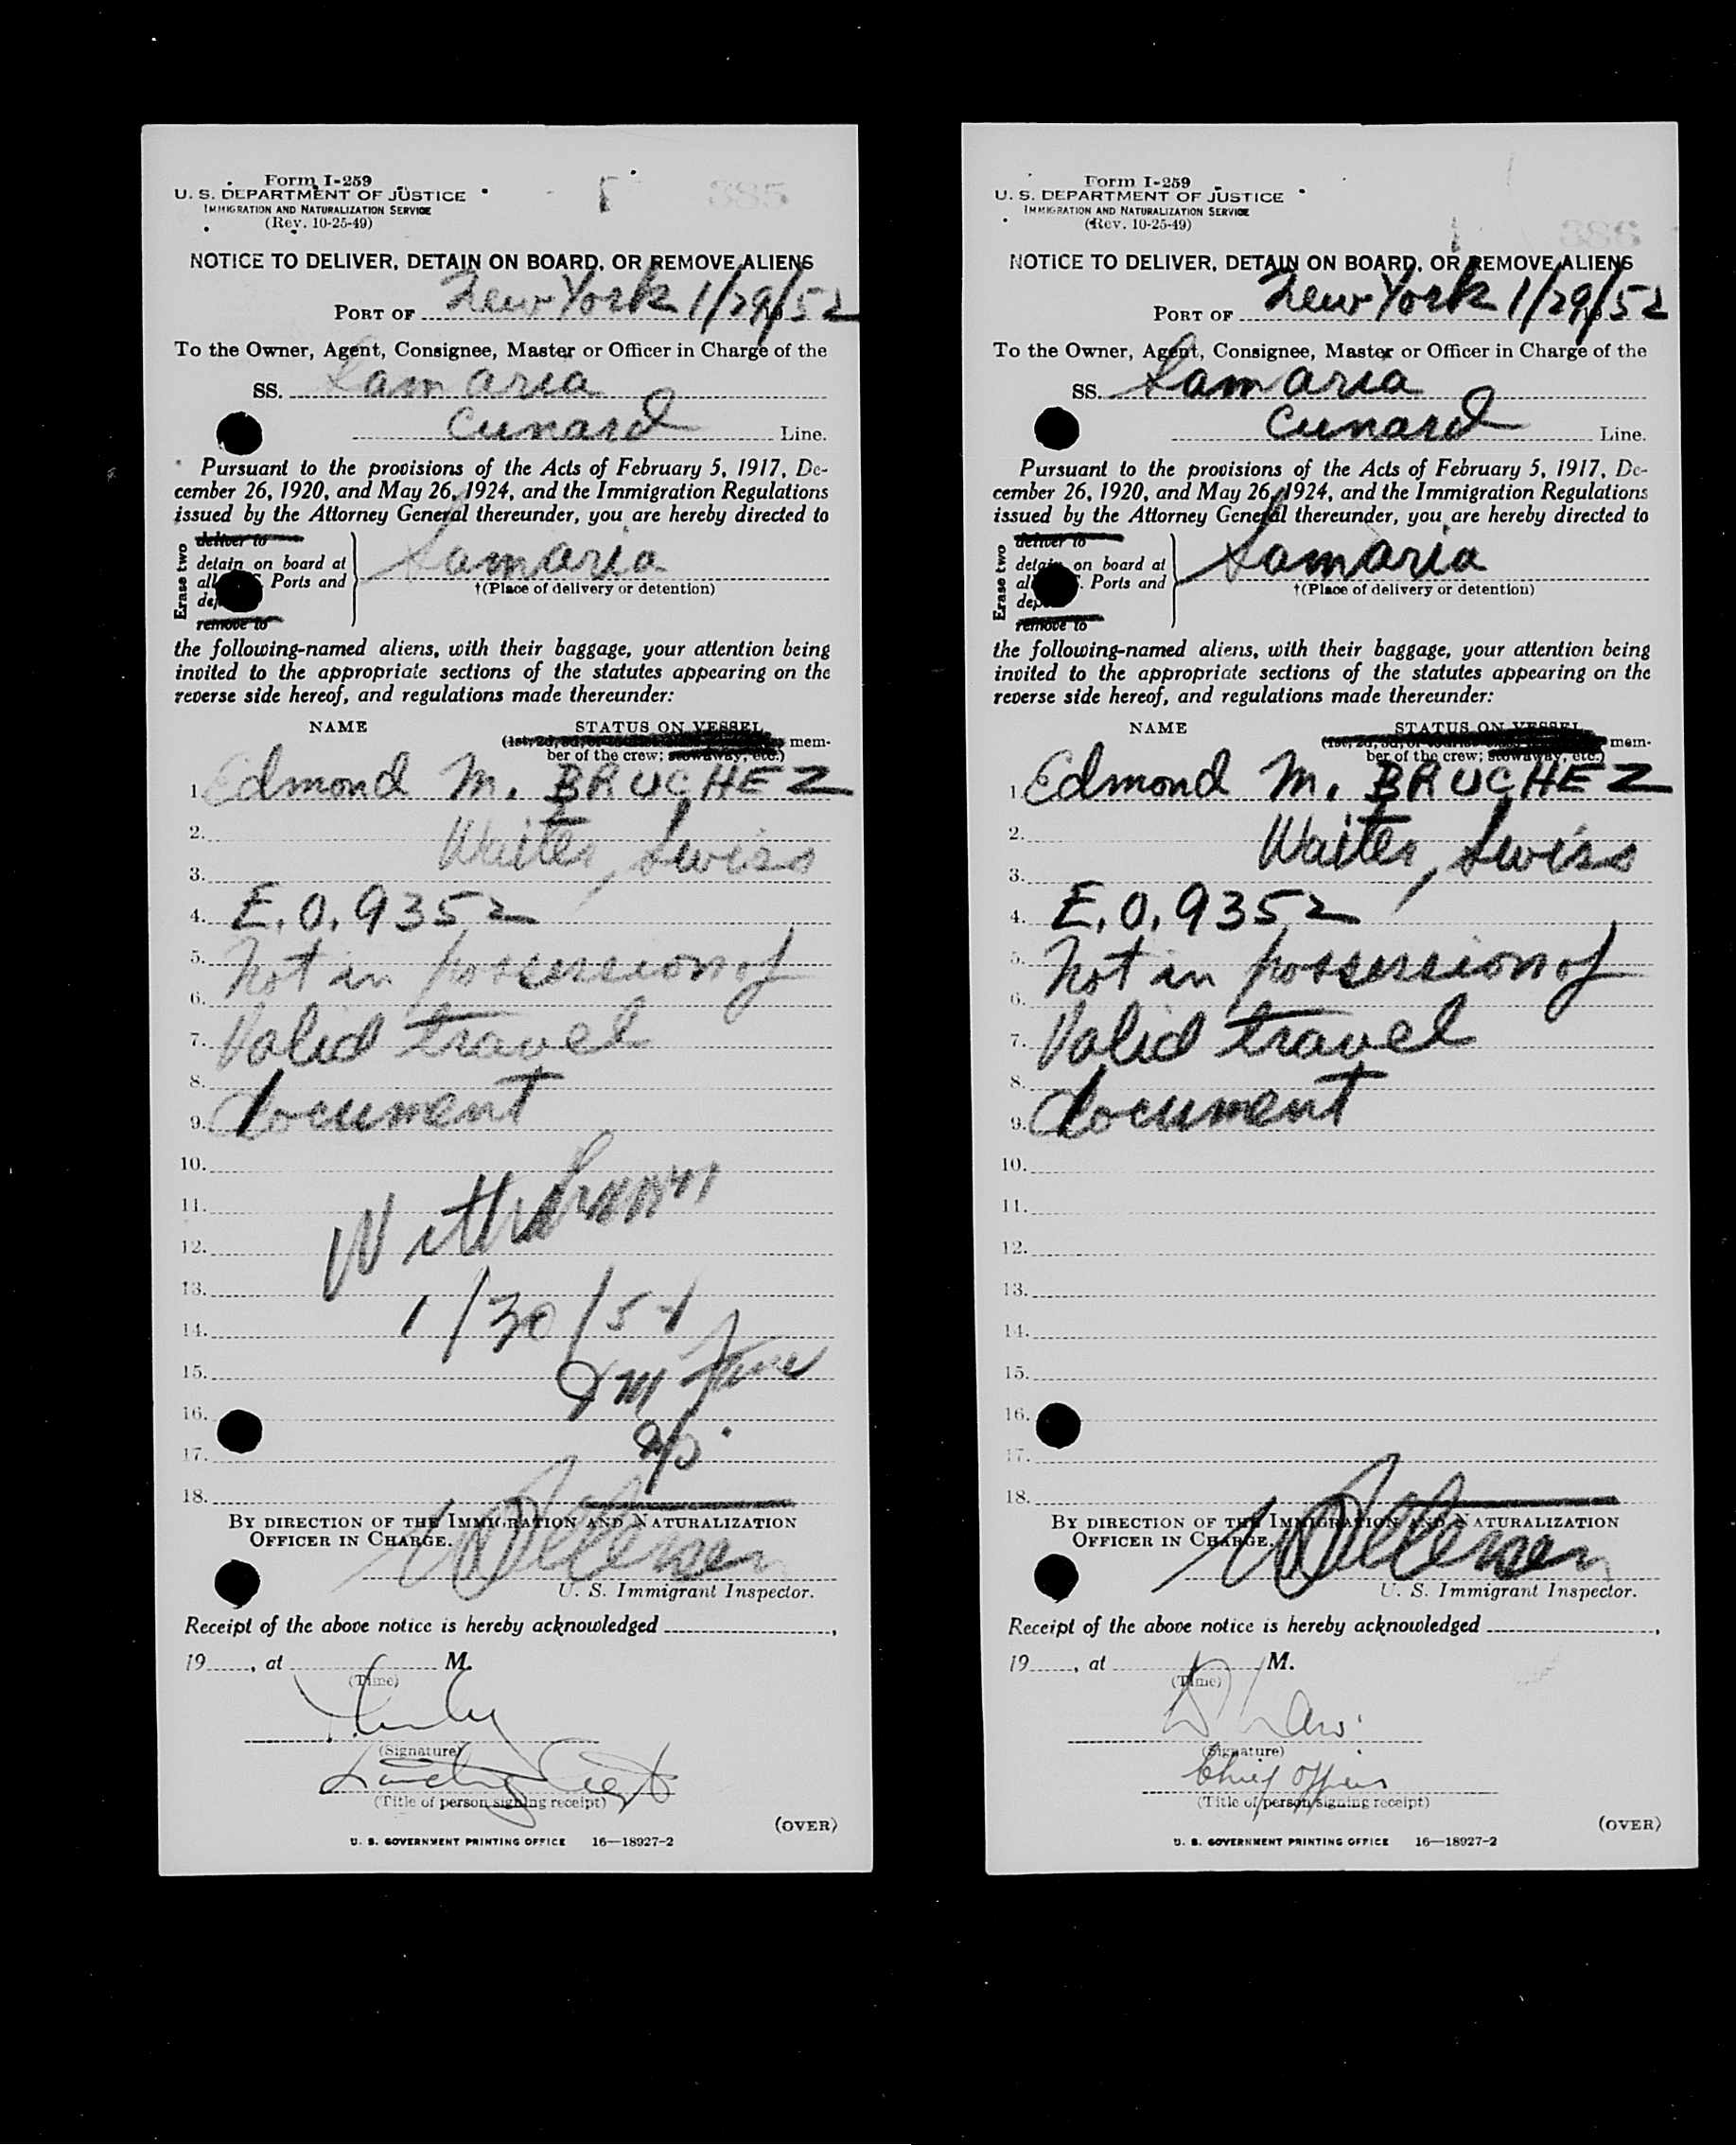 Form I-259
U. S. DEPARTMENT OF JUSTICE
IMMIGRATION AND NATURALIZATION SERVICE
(Rev. 10-25-49)
385
NOTICE TO DELIVER, DETAIN ON BOARD, OR REMOVE ALIENS
PORT OF New York 1/29/52
To the Owner, Agent, Consignee, Master or Officer in Charge of the
SS. Samaria
Cunard Line.
Pursuant to the provisions of the Acts of February 5, 1917, De-
cember 26, 1920, and May 26, 1924, and the Immigration Regulations
issued by the Attorney General thereunder, you are hereby directed to
Erase two
deliver to
detain on board at
all Ports and
remove to
Samaria
†(Place of delivery or detention)
the following-named aliens, with their baggage, your attention being
invited to the appropriate sections of the statutes appearing on the
reverse side hereof, and regulations made thereunder:
NAME STATUS ON VESSEL
mem-
ber of the crew; stowaway, etc.)
1. Edmond M. BRUCHEZ
2. Waiter, Swiss
3.
4. E.O. 9352
5. Not in possession of
6.
7. Valid travel
8.
9. document
10.
11. Withdrawn
12.
13.
14. 1/30/52
15.
16.
17.
18.
BY DIRECTION OF THE IMMIGRATION AND NATURALIZATION
OFFICER IN CHARGE.
U. S. Immigrant Inspector.
Receipt of the above notice is hereby acknowledged ,
19 , at M.
(Time)
(Signature)
(Title of person signing receipt)
(OVER)
U. S. GOVERNMENT PRINTING OFFICE 16—18927-2
Form I-259
U. S. DEPARTMENT OF JUSTICE
IMMIGRATION AND NATURALIZATION SERVICE
(Rev. 10-25-49)
386
NOTICE TO DELIVER, DETAIN ON BOARD, OR REMOVE ALIENS
PORT OF New York 1/29/52
To the Owner, Agent, Consignee, Master or Officer in Charge of the
SS. Samaria
Cunard Line.
Pursuant to the provisions of the Acts of February 5, 1917, De-
cember 26, 1920, and May 26, 1924, and the Immigration Regulations
issued by the Attorney General thereunder, you are hereby directed to
Erase two
deliver to
detain on board at
Ports and
remove to
Samaria
†(Place of delivery or detention)
the following-named aliens, with their baggage, your attention being
invited to the appropriate sections of the statutes appearing on the
reverse side hereof, and regulations made thereunder:
NAME STATUS ON VESSEL
mem-
ber of the crew; stowaway, etc.)
1. Edmond M. BRUCHEZ
2. Waiter, Swiss
3.
4. E.O. 9352
5. Not in possession of
6.
7. Valid travel
8.
9. document
10.
11.
12.
13.
14.
15.
16.
17.
18.
BY DIRECTION OF THE IMMIGRATION AND NATURALIZATION
OFFICER IN CHARGE.
U. S. Immigrant Inspector.
Receipt of the above notice is hereby acknowledged ,
19 , at M.
(Time)
(Signature)
Chief Officer
(Title of person signing receipt)
(OVER)
U. S. GOVERNMENT PRINTING OFFICE 16—18927-2